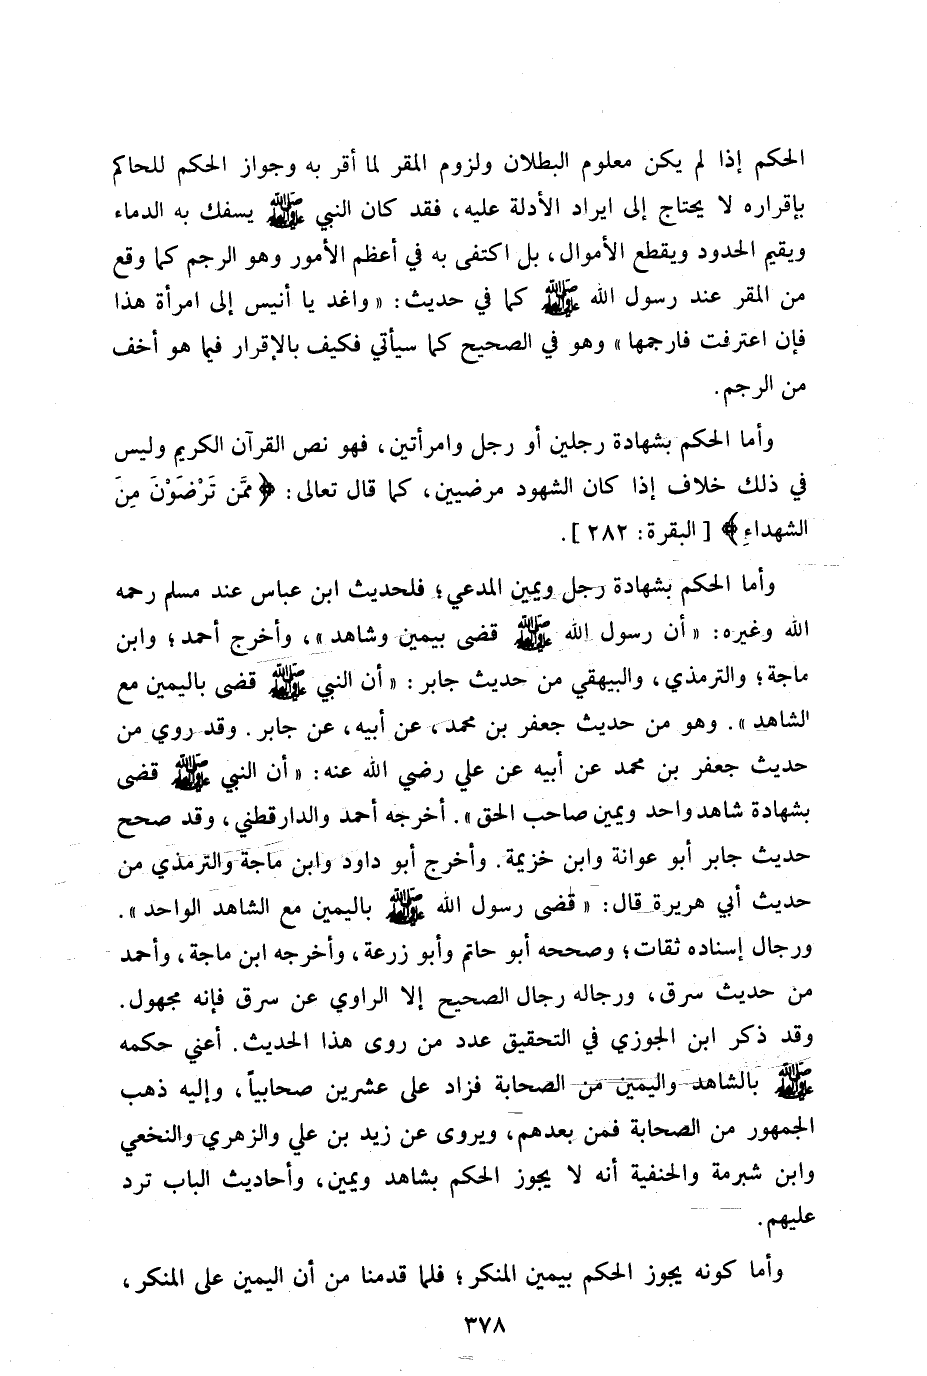 الحكم إذا لم يكن معلوم البطلان ولزوم المقر لما أقر به وجواز الحكم للحاكم
بإقراره لا يحتاج إلى ايراد الأدلة عليه، فقد كان النبي ﷺ يسفك به الدماء
ويقيم الحدود ويقطع الأموال، بل اكتفى به في أعظم الأمور وهو الرجم كما وقع
من المقر عند رسول الله ﷺ كما في حديث: « واغد يا أنيس إلى امرأة هذا
فإن اعترفت فارجمها » وهو في الصحيح كما سيأتي فكيف بالإقرار فيما هو أخف
من الرجم.
وأما الحكم بشهادة رجلين أو رجل وامرأتين، فهو نص القرآن الكريم وليس
في ذلك خلاف إذا كان الشهود مرضيين، كما قال تعالى: ﴿ ممَّن تَرْضَوْنَ مِنَ
الشهداءِ ﴾ [ البقرة: ٢٨٢ ].
وأما الحكم بشهادة رجل ويمين المدعي؛ فلحديث ابن عباس عند مسلم رحمه
الله وغيره: « أن رسول الله ﷺ قضى بيمين وشاهد »، وأخرج أحمد؛ وابن
ماجة؛ والترمذي، والبيهقي من حديث جابر: « أن النبي ﷺ قضى باليمين مع
الشاهد ». وهو من حديث جعفر بن محمد، عن أبيه، عن جابر. وقد روي من
حديث جعفر بن محمد عن أبيه عن علي رضي الله عنه: « أن النبي ﷺ قضى
بشهادة شاهد واحد ويمين صاحب الحق ». أخرجه أحمد والدارقطني، وقد صحح
حديث جابر أبو عوانة وابن خزيمة. وأخرج أبو داود وابن ماجة والترمذي من
حديث أبي هريرة قال: « قضى رسول الله ﷺ باليمين مع الشاهد الواحد ».
ورجال إسناده ثقات؛ وصححه أبو حاتم وأبو زرعة، وأخرجه ابن ماجة، وأحمد
من حديث سرق، ورجاله رجال الصحيح إلا الراوي عن سرق فإنه مجهول.
وقد ذكر ابن الجوزي في التحقيق عدد من روى هذا الحديث. أعني حكمه
ﷺ بالشاهد واليمين من الصحابة فزاد على عشرين صحابياً، وإليه ذهب
الجمهور من الصحابة فمن بعدهم، ويروى عن زيد بن علي والزهري والنخعي
وابن شبرمة والحنفية أنه لا يجوز الحكم بشاهد ويمين، وأحاديث الباب ترد
عليهم.
وأما كونه يجوز الحكم بيمين المنكر؛ فلما قدمنا من أن اليمين على المنكر،
٣٧٨